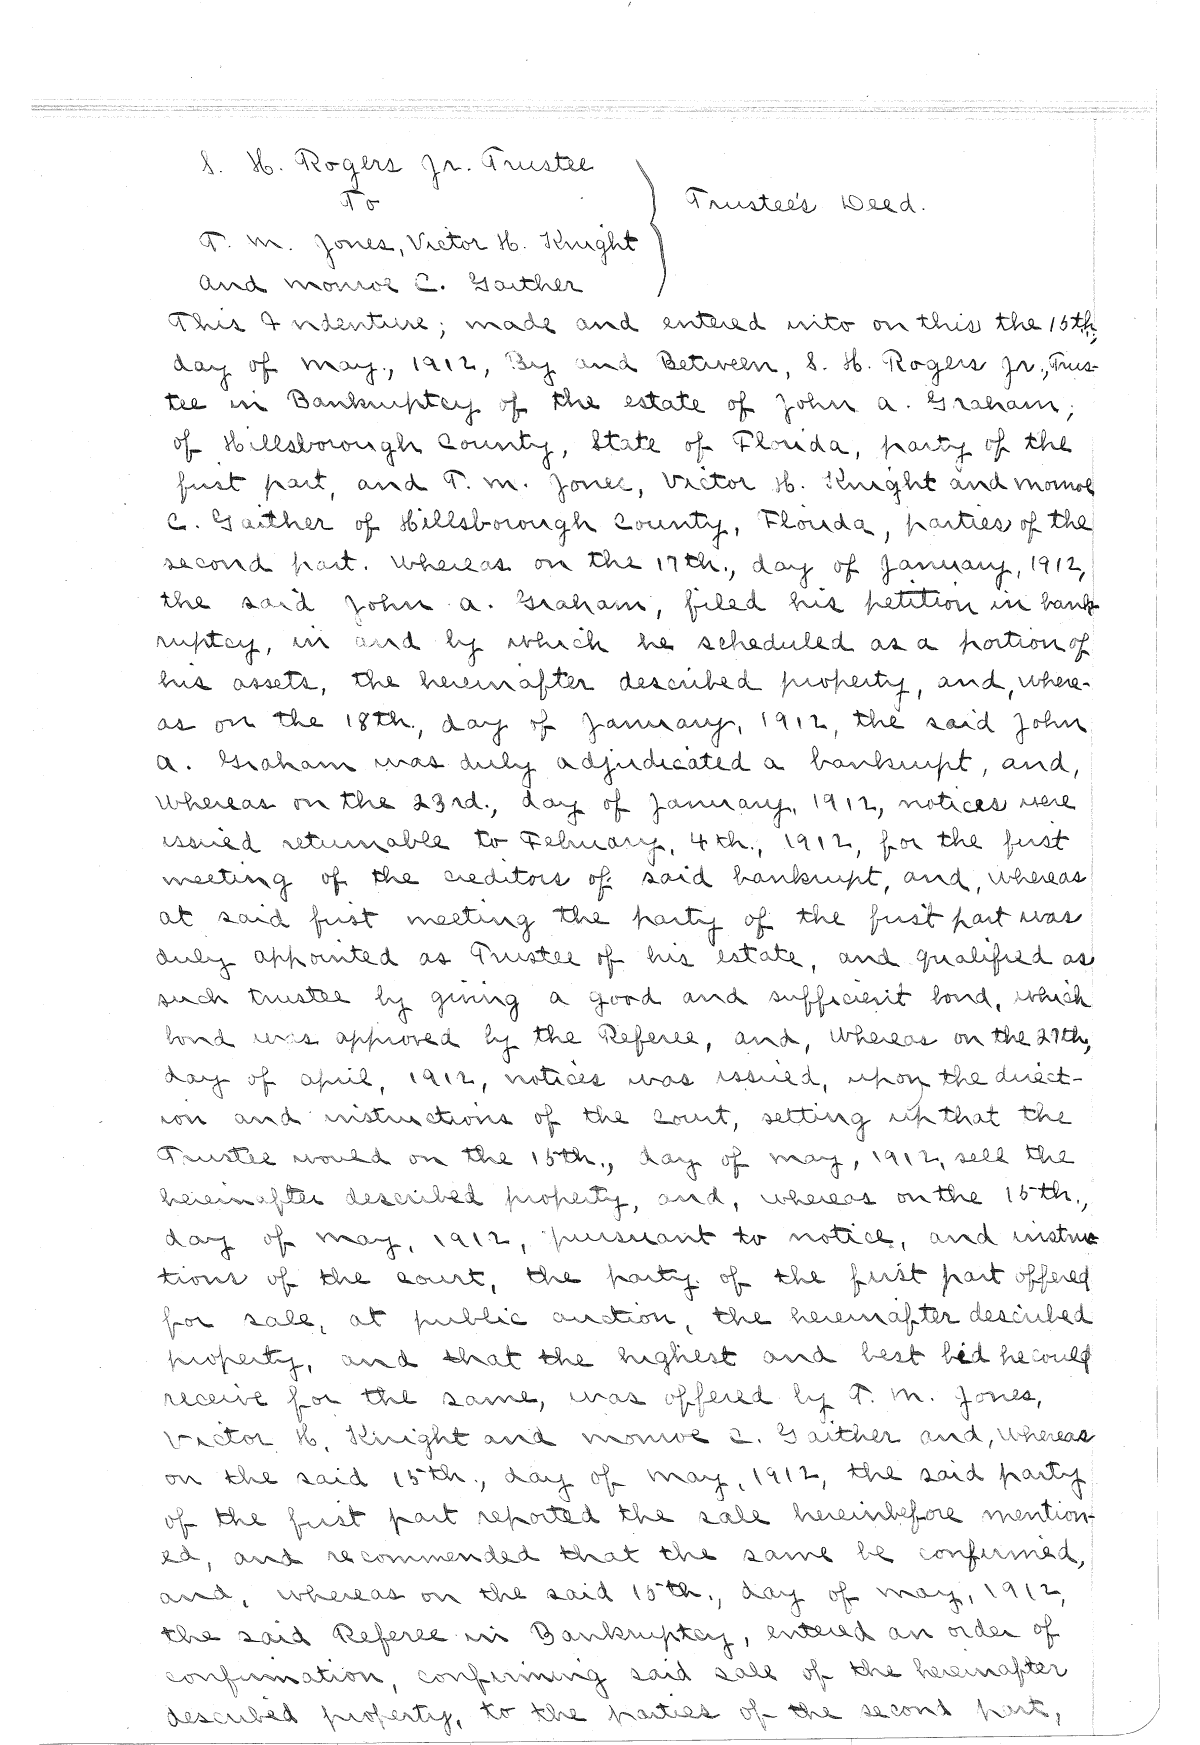 S. H. Rogers Jr. Trustee
To
Trustee's Deed.
T. M. Jones, Victor H. Knight
and Monroe C. Gaither
This Indenture; made and entered into on this the 15th,
day of May, 1912, By and Between, S. H. Rogers Jr., Trus-
tee in Bankruptcy of the estate of John A. Graham;
of Hillsborough County, State of Florida, party of the
first part, and T. M. Jones, Victor H. Knight and Monroe
C. Gaither of Hillsborough County, Florida, parties of the
second part. Whereas on the 17th., day of January, 1912,
the said John A. Graham, filed his petition in bank-
ruptcy, in and by which he scheduled as a portion of
his assets, the hereinafter described property, and, where-
as on the 18th., day of January, 1912, the said John
A. Graham was duly adjudicated a bankrupt, and,
Whereas on the 23rd., day of January, 1912, notices were
issued returnable to February, 4th., 1912, for the first
meeting of the creditors of said bankrupt, and, whereas
at said first meeting the party of the first part was
duly appointed as Trustee of his estate, and qualified as
such trustee by giving a good and sufficient bond, which
bond was approved by the Referee, and, whereas on the 27th,
day of April, 1912, notices was issued, upon the direct-
ion and instructions of the Court, setting up that the
Trustee would on the 15th., day of May, 1912, sell the
hereinafter described property, and, whereas on the 15th.,
day of May, 1912, pursuant to notice, and instruc
tions of the court, the party of the first part offered
for sale, at public auction, the hereinafter described
property, and that the highest and best bid he could
receive for the same, was offered by T. M. Jones,
Victor H. Knight and Monroe C. Gaither and, whereas
on the said 15th., day of May, 1912, the said party
of the first part reported the sale hereinbefore mention-
ed, and recommended that the same be confirmed,
and, whereas on the said 15th., day of May, 1912,
the said Referee in Bankruptcy, entered an order of
confirmation, confirming said sale of the hereinafter
described property, to the parties of the second part,